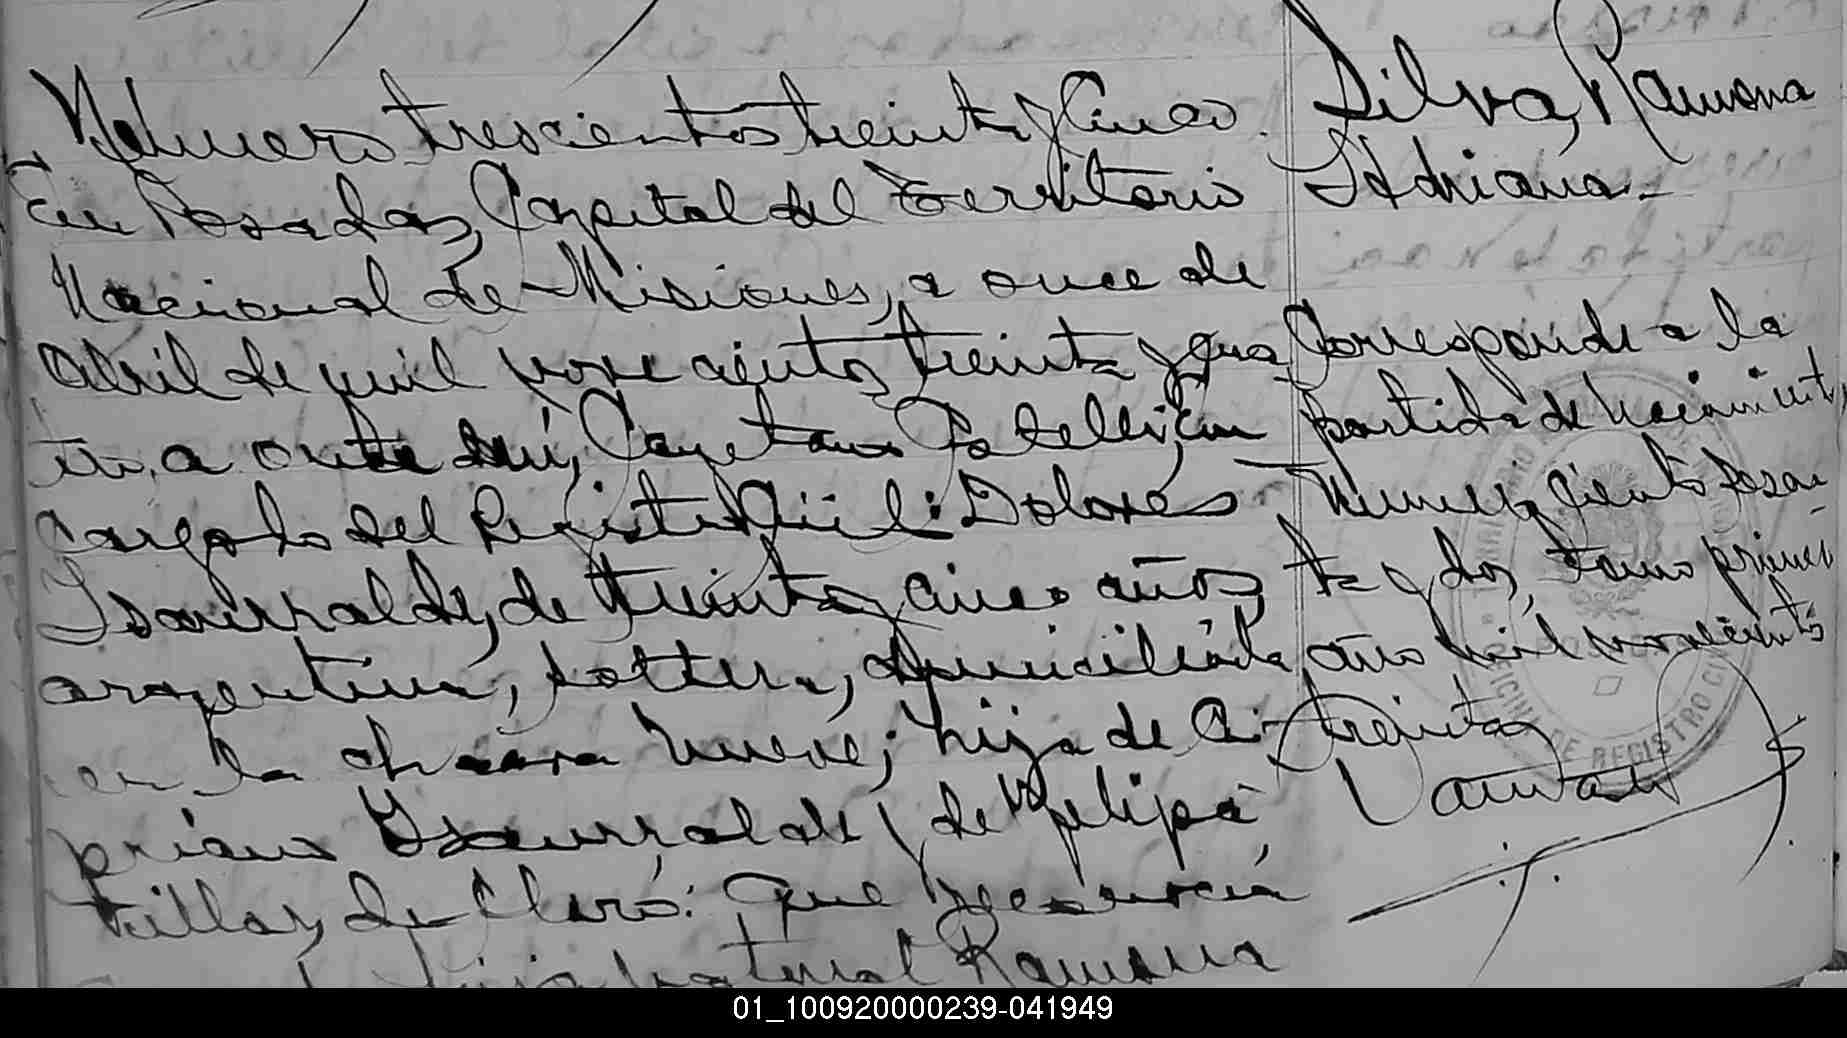 Número trescientos treinta y cinco.
En Posadas, Capital del Territorio
Nacional de Misiones, a once de
Abril de mil novecientos treinta y cua
tro, a ante mí, Cayetano Encar
gado del Registro Civil: Dolores
Isaurralde, de treinta y cinco años,
argentina, soltera, domiciliada
en la chacra nueve; hija de Ci-
priano Ysaurralde y de Felipa
Villar, declaró: Que reconocía
hija natural Ramona
Silva, Ramona
Adriana.-
Corresponde a la
partida de nacimiento
número ciento sesen-
ta y dos, tomo primero
año mil novecientos
treinta
REGISTRO CIVIL
01_100920000239-041949